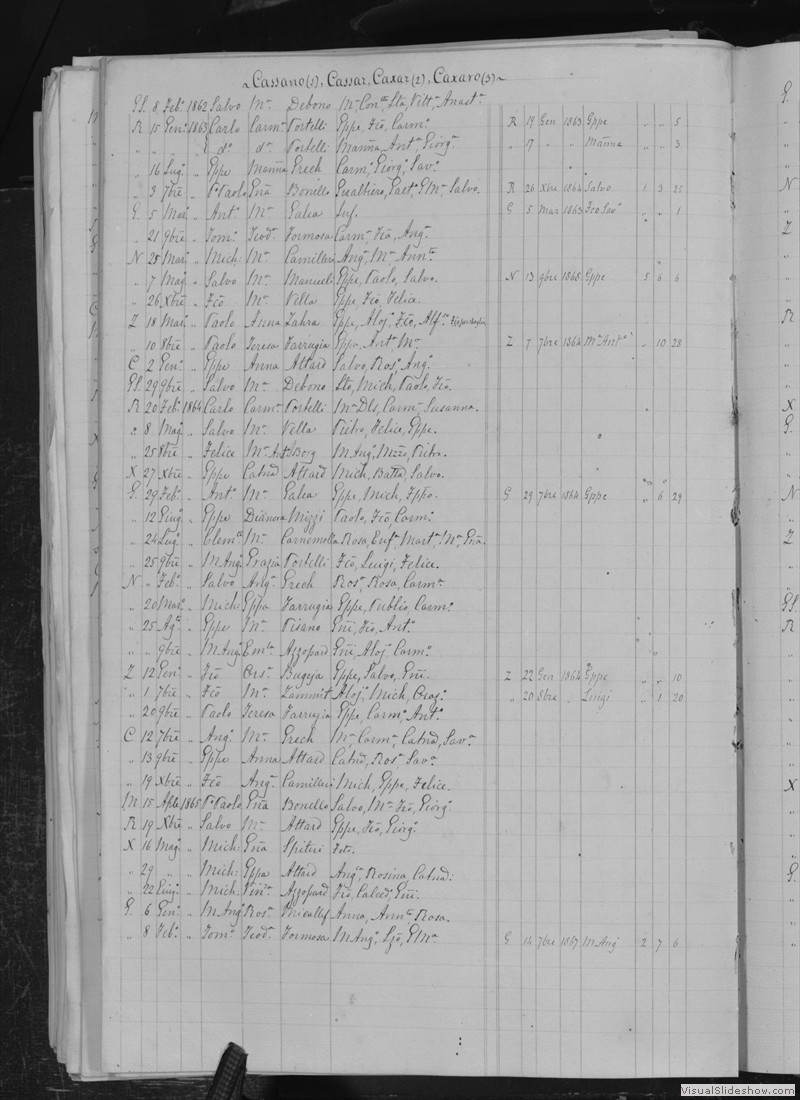 Cassano(1), Cassar, Caxar(2), Caxaro(3)
GS. 8 Feb.º 1862 Salvo M.ª Debono M.ª Con.ta Sta, Vitt.ª Anast.ª
R 15 Gen.º 1863 Carlo Carm.ª Portelli Gppe, Fcõ, Carm.ª R 19 Gen 1863 Gppe " " 5
" " " " d.º d.ª Portelli Mañna, Ant.ª, Giorg.ª " 17 " " Mañna " " 3
" 16 Lug.º " Gppe Mañna Grech Carm.º, Giorg.º, Sav.ª
" 3 7bre " P. Paolo Gña Bonello Gualtiero, Gaet.º, G.M.ª Salvo. R 26 Xbre 1864 Salvo 1 3 25
G 5 Mar.º " Ant.º M.ª Galea Inf. G 5 Mar 1863 Fcõ Sav.º " " 1
" 21 9bre " Tom.º Teod.ª Formosa Carm.ª, Fcõ, Ang.ª
N 25 Mar.º " Mich: M.ª Camilleri Ang.º, M.ª Ann.ta
" 7 Mag.º " Salvo M.ª Manueli Gppe, Paolo, Salvo. N 13 9bre 1868 Gppe 5 6 6
" 26 Xbre " Fcõ M.ª Vella Gppe, Fcõ, Felice.
Z 18 Mar.º " Paolo Anna Zahra Gppe, Aloj.º, Fcõ, Alf.so
" 10 8bre " Paolo Teresa Farrugia Gppa, Ant.ª M.ª Z 7 7bre 1864 M.ª Ant.ª " 10 28
C 2 Gen.º " Gppe Anna Attard Salvo, Ros.º, Ang.º
GS. 29 9bre " Salvo M.ª Debono Sto, Mich, Paolo, Fcõ.
R 20 Feb.º 1864 Carlo Carm.ª Portelli M.ª Dls, Carm.ª Susanna.
" 8 Mag.º " Salvo M.ª Vella Pietro, Felice, Gppe.
" 25 8bre " Felice M.ª Ant.ª Borg M Ang.º, Pietro.
X 27 Xbre " Gppe Catña Attard Mich, Batta, Salvo.
G. 29 Feb.º " Ant.º M.ª Galea Gppe, Mich, G 29 7bre 1864 Gppe " 6 29
" 12 Giug.º " Gppe Dianora Mizzi Paolo, Fcõ, Carm.º
" 24 Lug.º " Clem.te M.ª Carnemolla Rosa, Mart.ª, M.ª Gña.
" 25 9bre " M Ang.º Grazia Portelli Fcõ, Luigi, Felice.
N " Feb.º " Salvo Ang.ª Grech Ros.ª, Rosa, Carm.ª
" 20 Mar.º " Mich: Gppa Farrugia Gppe, Publio, Carm.º
" 25 Ag.to " Gppe M.ª Pisano Gñi, Fcõ, Ant.º
" " 9bre " M Ang.º Azzopard Gñi, Aloj.º Carm.º
Z 12 Gen.º " Fcõ Ors.ª Bugeja Gppe, Salvo, Gñi. Z 22 Gen 1864 Gppe " " 10
" 1 7bre " Fcõ M.ª Zammit Aloj.º, Mich, " 20 8bre " Luigi " 1 20
" 20 9bre " Paolo Teresa Farrugia Gppe, Carm.º Ant.º
C 12 7bre " Ang.º M.ª Grech M.ª Carm.ª, Catña, Sav.ª
" 13 9bre " Gppe Anna Attard Catña, Ros.ª Sav.ª
" 19 Xbre " Fcõ Ang.ª Camilleri Mich, Gppe, Felice.
M 15 Aple 1865 P. Paolo Gña Bonello Salvo, M.ª Fcõ, Giorg.º
R 19 Xbre " Salvo M.ª Attard Gppe, Fcõ, Giorg.º
X 16 Mag.º " Mich: Gña Spiteri
" 29 " " Mich: Gppa Attard Ang.ª, Rosina, Catña:
" 22 Giug.º " Mich: Azzopard Fcõ, Calced, Gñi.
G. 6 Gen.º " M Ang.º Ros.ª Micallef Anna, Ann.ta Rosa.
" 8 Feb.º " Tom.º Teod.ª Formosa M Ang.º, G M.ª G 14 7bre 1867 M Ang 2 7 6
VisualSlideshow.com